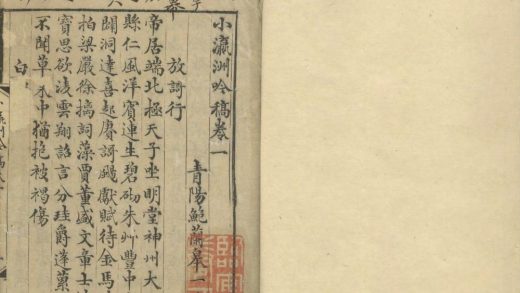 小瀛洲吟稿卷一
青陽鮑蘭皋一
放謌行
帝居端北極天子坐明堂神州大
縣仁風洋賓連生碧砌朱艸豐中
洞達喜起賡謌颺獻賦待金馬
拍梁嚴徐摛詞藻賈董盛文章士
寶思欲淩雲翔詔言分珪爵蓬藁
不聞草木中猶抱被褐傷
白